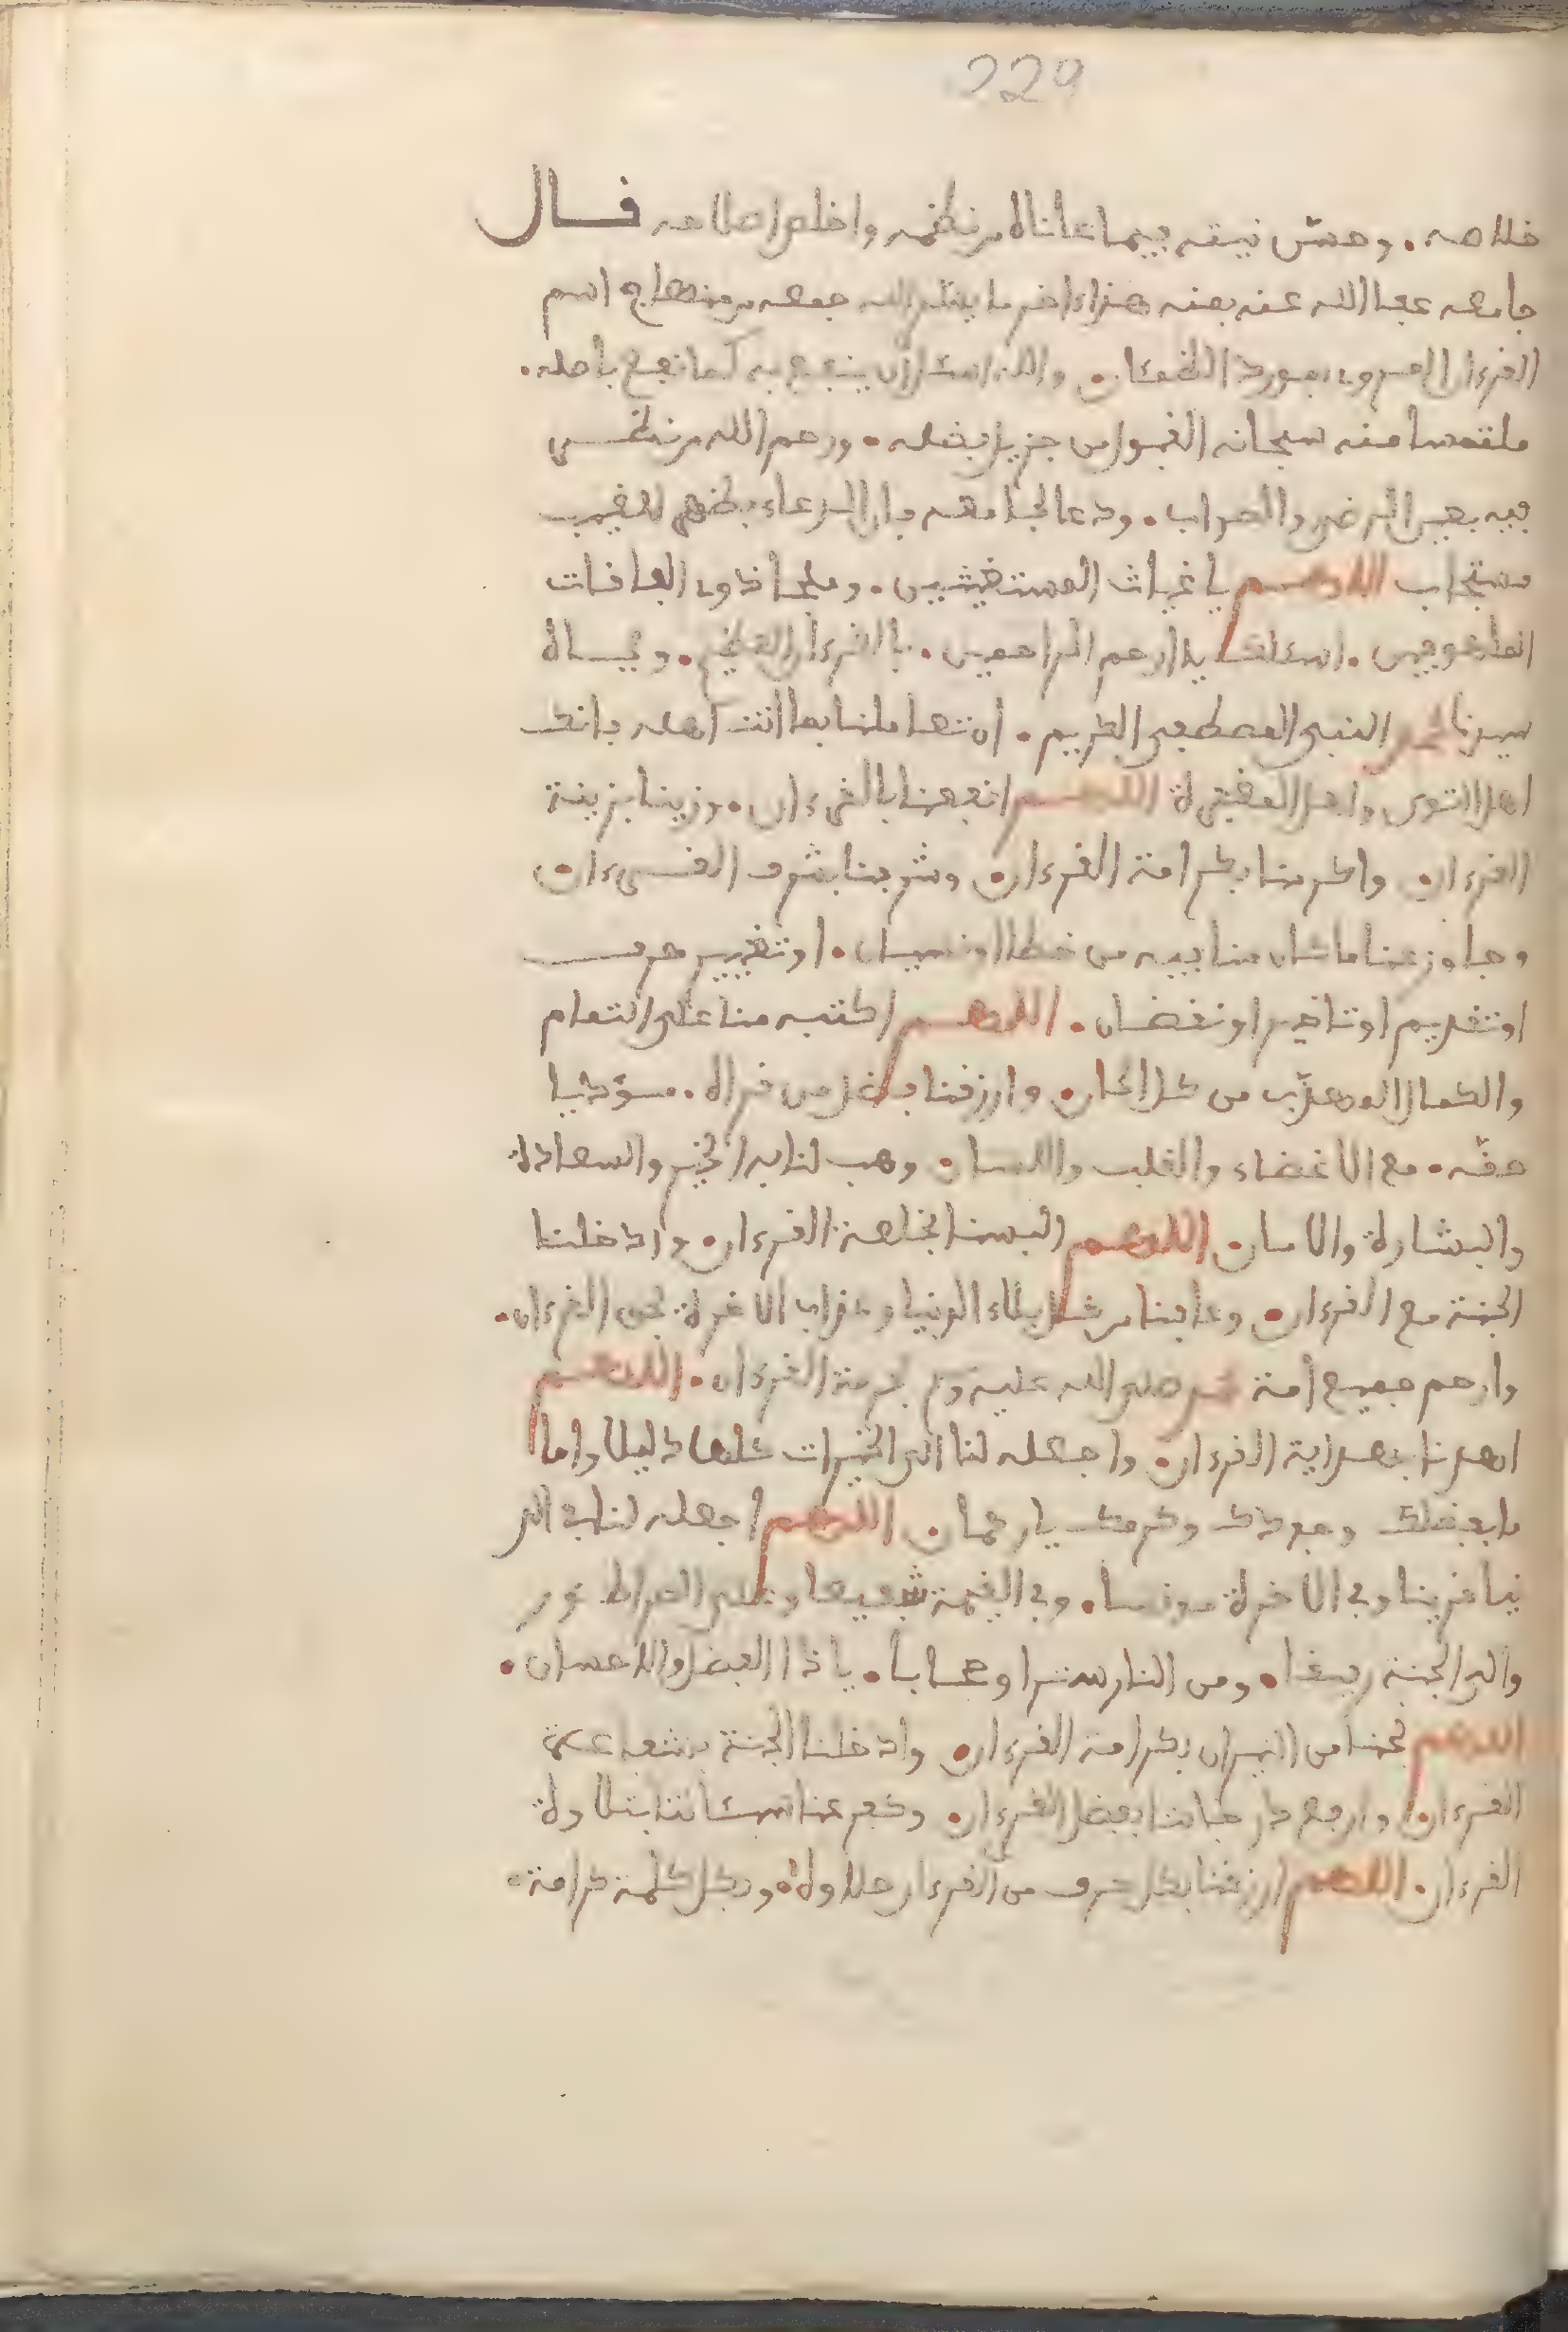 229
خلاصه . وحسّن نيته فيما عاناه من نظمه واخلص اطلاعه قال
جامعه عفا الله عنه بمنه هذا ءاخر ما يسّر الله جمعه من منهاج رسم
القرءان المسمى بمورد الظمئان . والله اسئل أن ينفع به كما نفع باصله .
ملتمسا منه سبحانه القبول من جزيل فضله . ورحم الله من نظر
فيه بعين الرضى والصواب . ودعا لجامعه فإن الدعاء بظهر الغيب
مستجاب اللهم يا غياث المستغيثين . وملجأ ذوى الفاقات
الملهوفين . اسئلك يا ارحم الراحمين . بالقرءان العظيم . وبجاه
سيدنا محمد النبي المصطفى الكريم . ان تعاملنا بما انت أهله فانك
اهل التقوى واهل المغفرة اللهم انفعنا بالقرءان . وزينا بزينة
القرءان واكرمنا بكرامة القرءان وشرفنا بشرف القرءان
وجاوز عنا ما كان منا فيه من خطإ او نسيان . او تغيير حرف
او تقديم او تاخير او نقصان . اللهم اكتبه منا على التمام
والكمال المهذّب من كل الحان وارزقنا فضل من قراه . مؤديا
حقّه . مع الاعضاء والقلب واللسان وهب لنا به الخير والسعادة
والبشارة والامان اللهم البسنا بخلعة القرءان وادخلنا
الجنة مع القرءان وعافنا من كل بلاء الدنيا وعذاب الاخرة بحق القرءان .
وارحم جميع أمة محمد صلى الله عليه وسلم بحرمة القرءان . اللهم
اهدنا بهداية القرءان واجعله لنا الى الخيرات كلها دليلا واما
ما بفضلك وجودك وكرمك يا رحمان اللهم اجعله لنا في الد
نيا قرينا وفي الاخرة مونسا . وفي القيمة شفيعا وعلى الصراط نور
والى الجنة رفيقا . ومن النار سترا وحجابا . يا ذا الفضل والاحسان .
اللهم نجنا من النيران بكرامة القرءان وادخلنا الجنة بشفاعة
القرءان وارفع درجاتنا بفضل القرءان وكفر عنا سيئاتنا بتلاوة
القرءان . اللهم ارزقنا بكل حرف من القرءان حلاوة . وبكل كلمة كرامة .